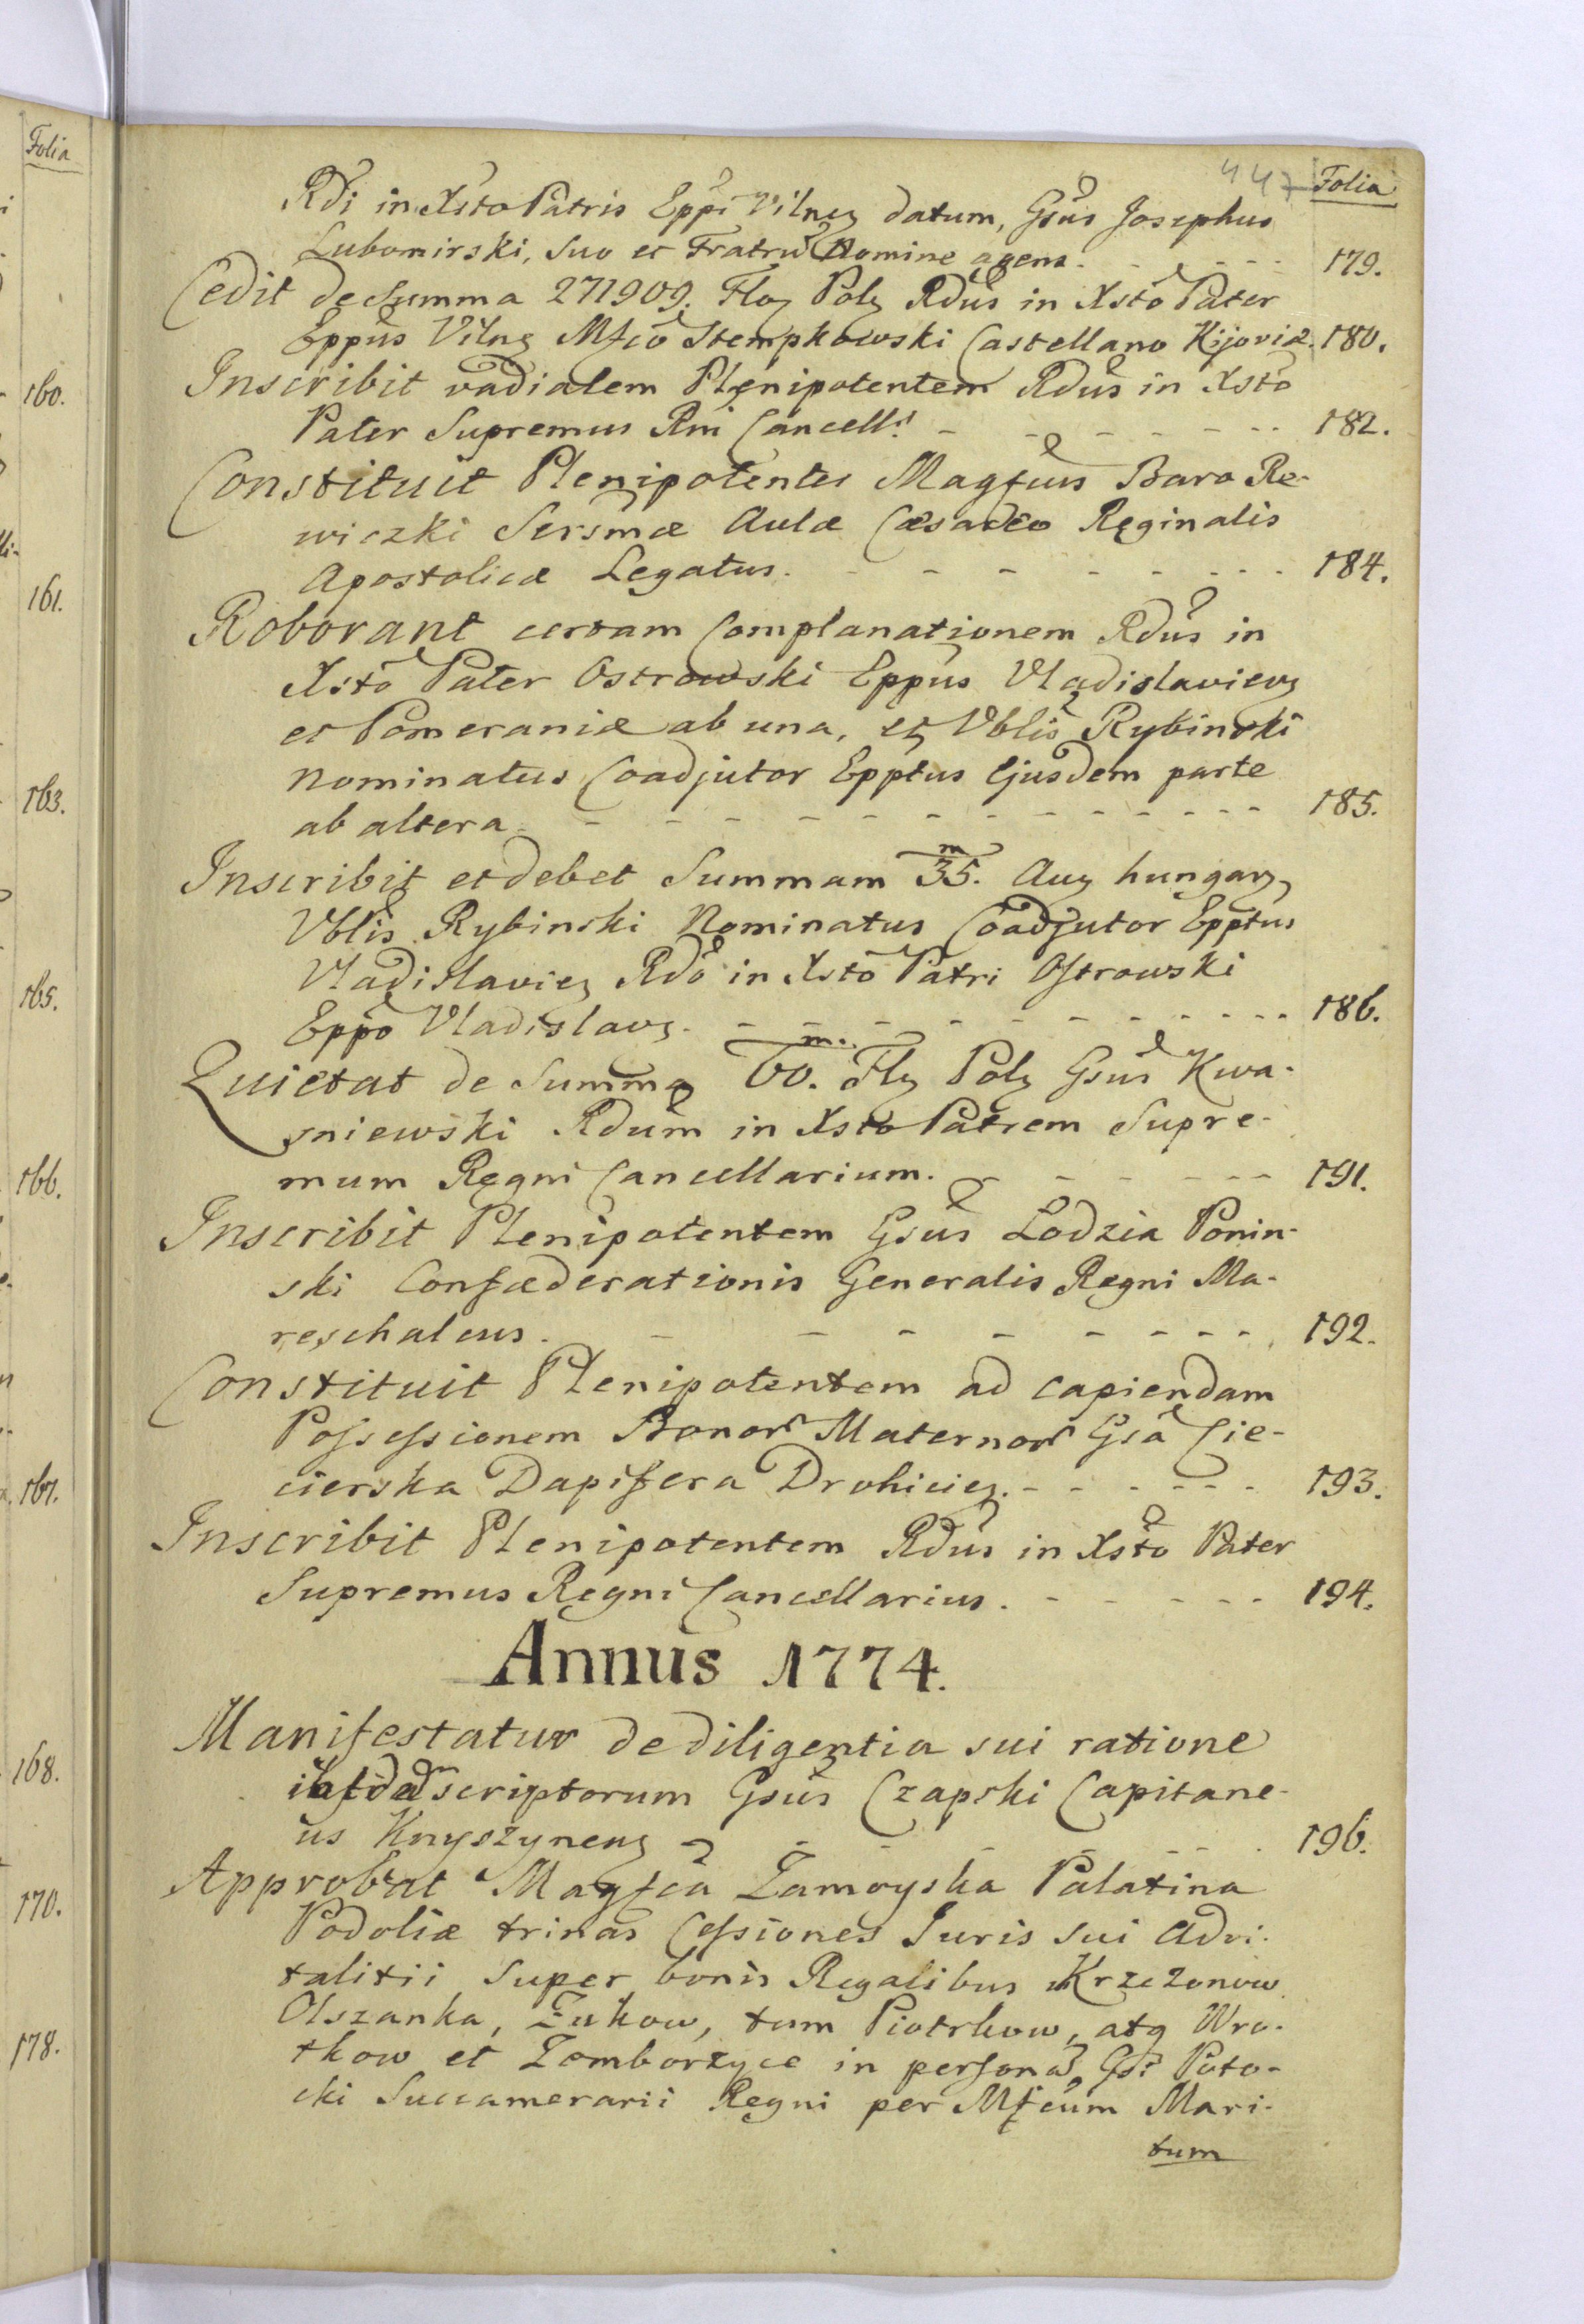 Folia
160.
161.
163.
165.
166.
167.
168.
170.
178.
447
Folia
Rdi in Xsto Patris Eppi Vilnen datum, Gsus Josephus
Lubomirski, suo et Fratrū Nomine agens. 179.
Cedit de Summa 271909. Flor Pol Rdus in Xsto Pater
Eppus Viln Mfco Stempkowski Castellano Kijoviæ. 180.
Inscribit vadialem Plenipotentem Rdus in Xsto
Pater Supremus Rni Cancell: 182.
Constituit Plenipotentes Magfcus Baro Re-
wiczki Sersmæ Aulæ Cæsareo Reginalis
Apostolicæ Legatus. 184.
Roborant certam Complanationem Rdus in
Xsto Pater Ostrowski Eppus Vladislavien
et Pomeraniæ ab una, et Vblis Rybinski
Nominatus Coadjutor Epptus Ejusdem parte
ab altera. 185.
Inscribit et debet Summam 35.m Aur hungar,
Vblis Rybinski Nominatus Coadjutor Epptus
Vladislavien Rdo in Xsto Patri Ostrowski
Eppo Vladislav. 186.
Quietat de Summa 60.m. Fl Pol Gsus Kwa-
sniewski Rdum in Xsto Patrem Supre-
mum Regni Cancellarium. 191.
Inscribit Plenipotentem Gsus Lodzia Ponin-
ski Confæderationis Generalis Regni Ma-
reschalcus. 192.
Constituit Plenipotentem ad capiendam
Possessionem Bonor Maternor Gsa Cie-
cierska Dapifera Drohicien. 193.
Inscribit Plenipotentem Rdus in Xsto Pater
Supremus Regni Cancellarius. 194.
Annus 1774.
Manifestatur de diligentia sui ratione
scriptorum Gsus Czapski Capitane-
us Knyszynen 196.
Approbat Magfca Zamoyska Palatina
Podoliæ trinas Cessiones Juris sui advi-
talitii super bonis Regalibus Krzczonow
Olszanka, Zukow, tum Piotrkow, atq Wro-
tkow et Zemborzyce in persona Gsi Poto-
cki Succamerarii Regni per Mfcum Mari-
tum